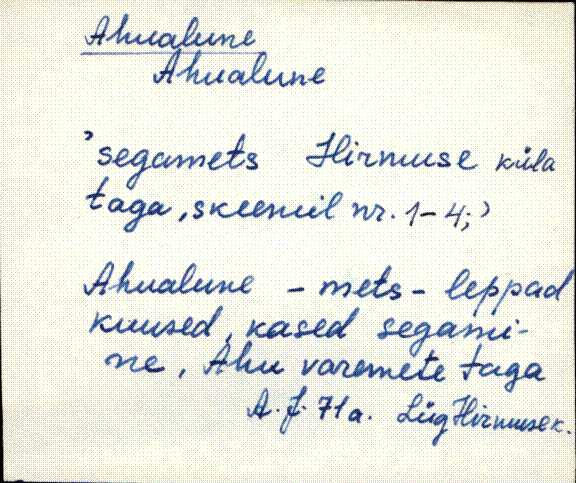 Ahualune
Ahualune
'segamets Hirmuse küla
taga, skeemil nr. 1-4;'
Ahualune - mets - leppad
kuused, kased segami-
ne, Ahu varemete taga
A. J. 71a. Lüg Hirmuse k.